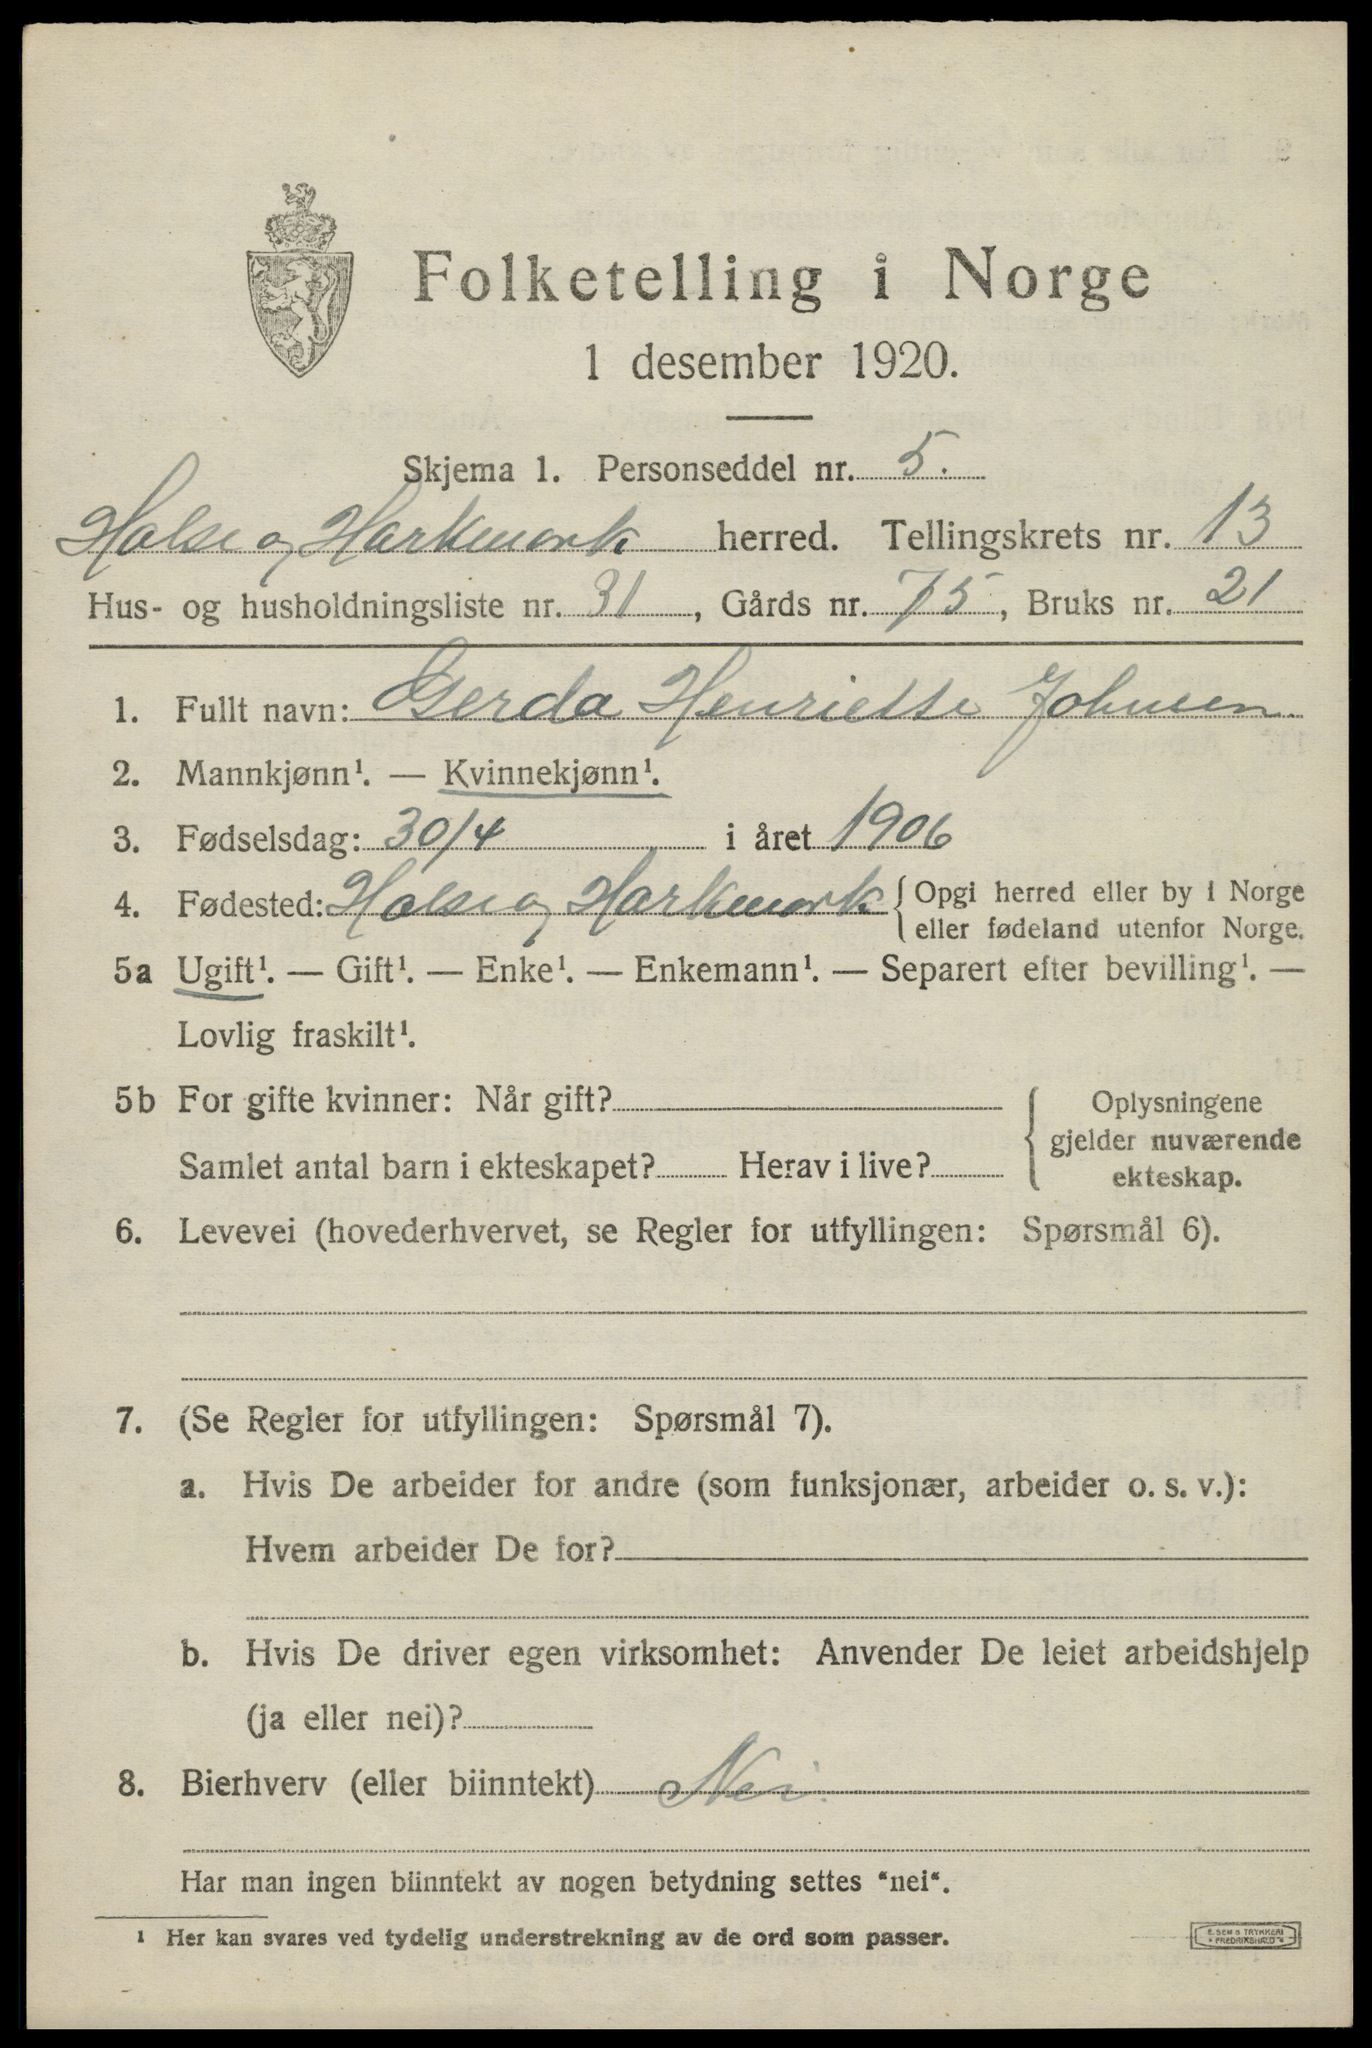 Folketelling i Norge
1 desember 1920.
Skjema 1. Personseddel nr. 5.
Halse og Harkmark herred. Tellingskrets nr. 13
Hus- og husholdningsliste nr. 31, Gårds nr. 75, Bruks nr. 21
1. Fullt navn: Gerda Henriette Johnsen
2. Mannkjønn¹. — Kvinnekjønn¹.
3. Fødselsdag: 30/4 i året 1906
4. Fødested: Halse og Harkmark { Opgi herred eller by i Norge
eller fødeland utenfor Norge.
5a Ugift¹. — Gift¹. — Enke¹. — Enkemann¹. — Separert efter bevilling¹. —
Lovlig fraskilt¹.
5b For gifte kvinner: Når gift?
Samlet antal barn i ekteskapet? Herav i live?
{ Oplysningene
gjelder nuværende
ekteskap.
6. Levevei (hovederhvervet, se Regler for utfyllingen: Spørsmål 6).
7. (Se Regler for utfyllingen: Spørsmål 7).
a. Hvis De arbeider for andre (som funksjonær, arbeider o. s. v.):
Hvem arbeider De for?
b. Hvis De driver egen virksomhet: Anvender De leiet arbeidshjelp
(ja eller nei)?
8. Bierhverv (eller biinntekt) Nei.
Har man ingen biinntekt av nogen betydning settes "nei".
¹ Her kan svares ved tydelig understrekning av de ord som passer.
E. SEM'S TRYKKERI
FREDRIKSHALD